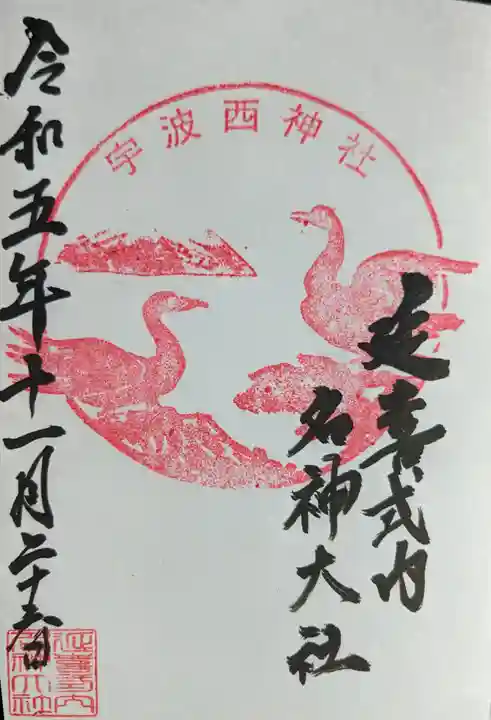 宇波西神社
延喜式内
名神大社
令和五年十一月二十六日
延喜式内
名神大社